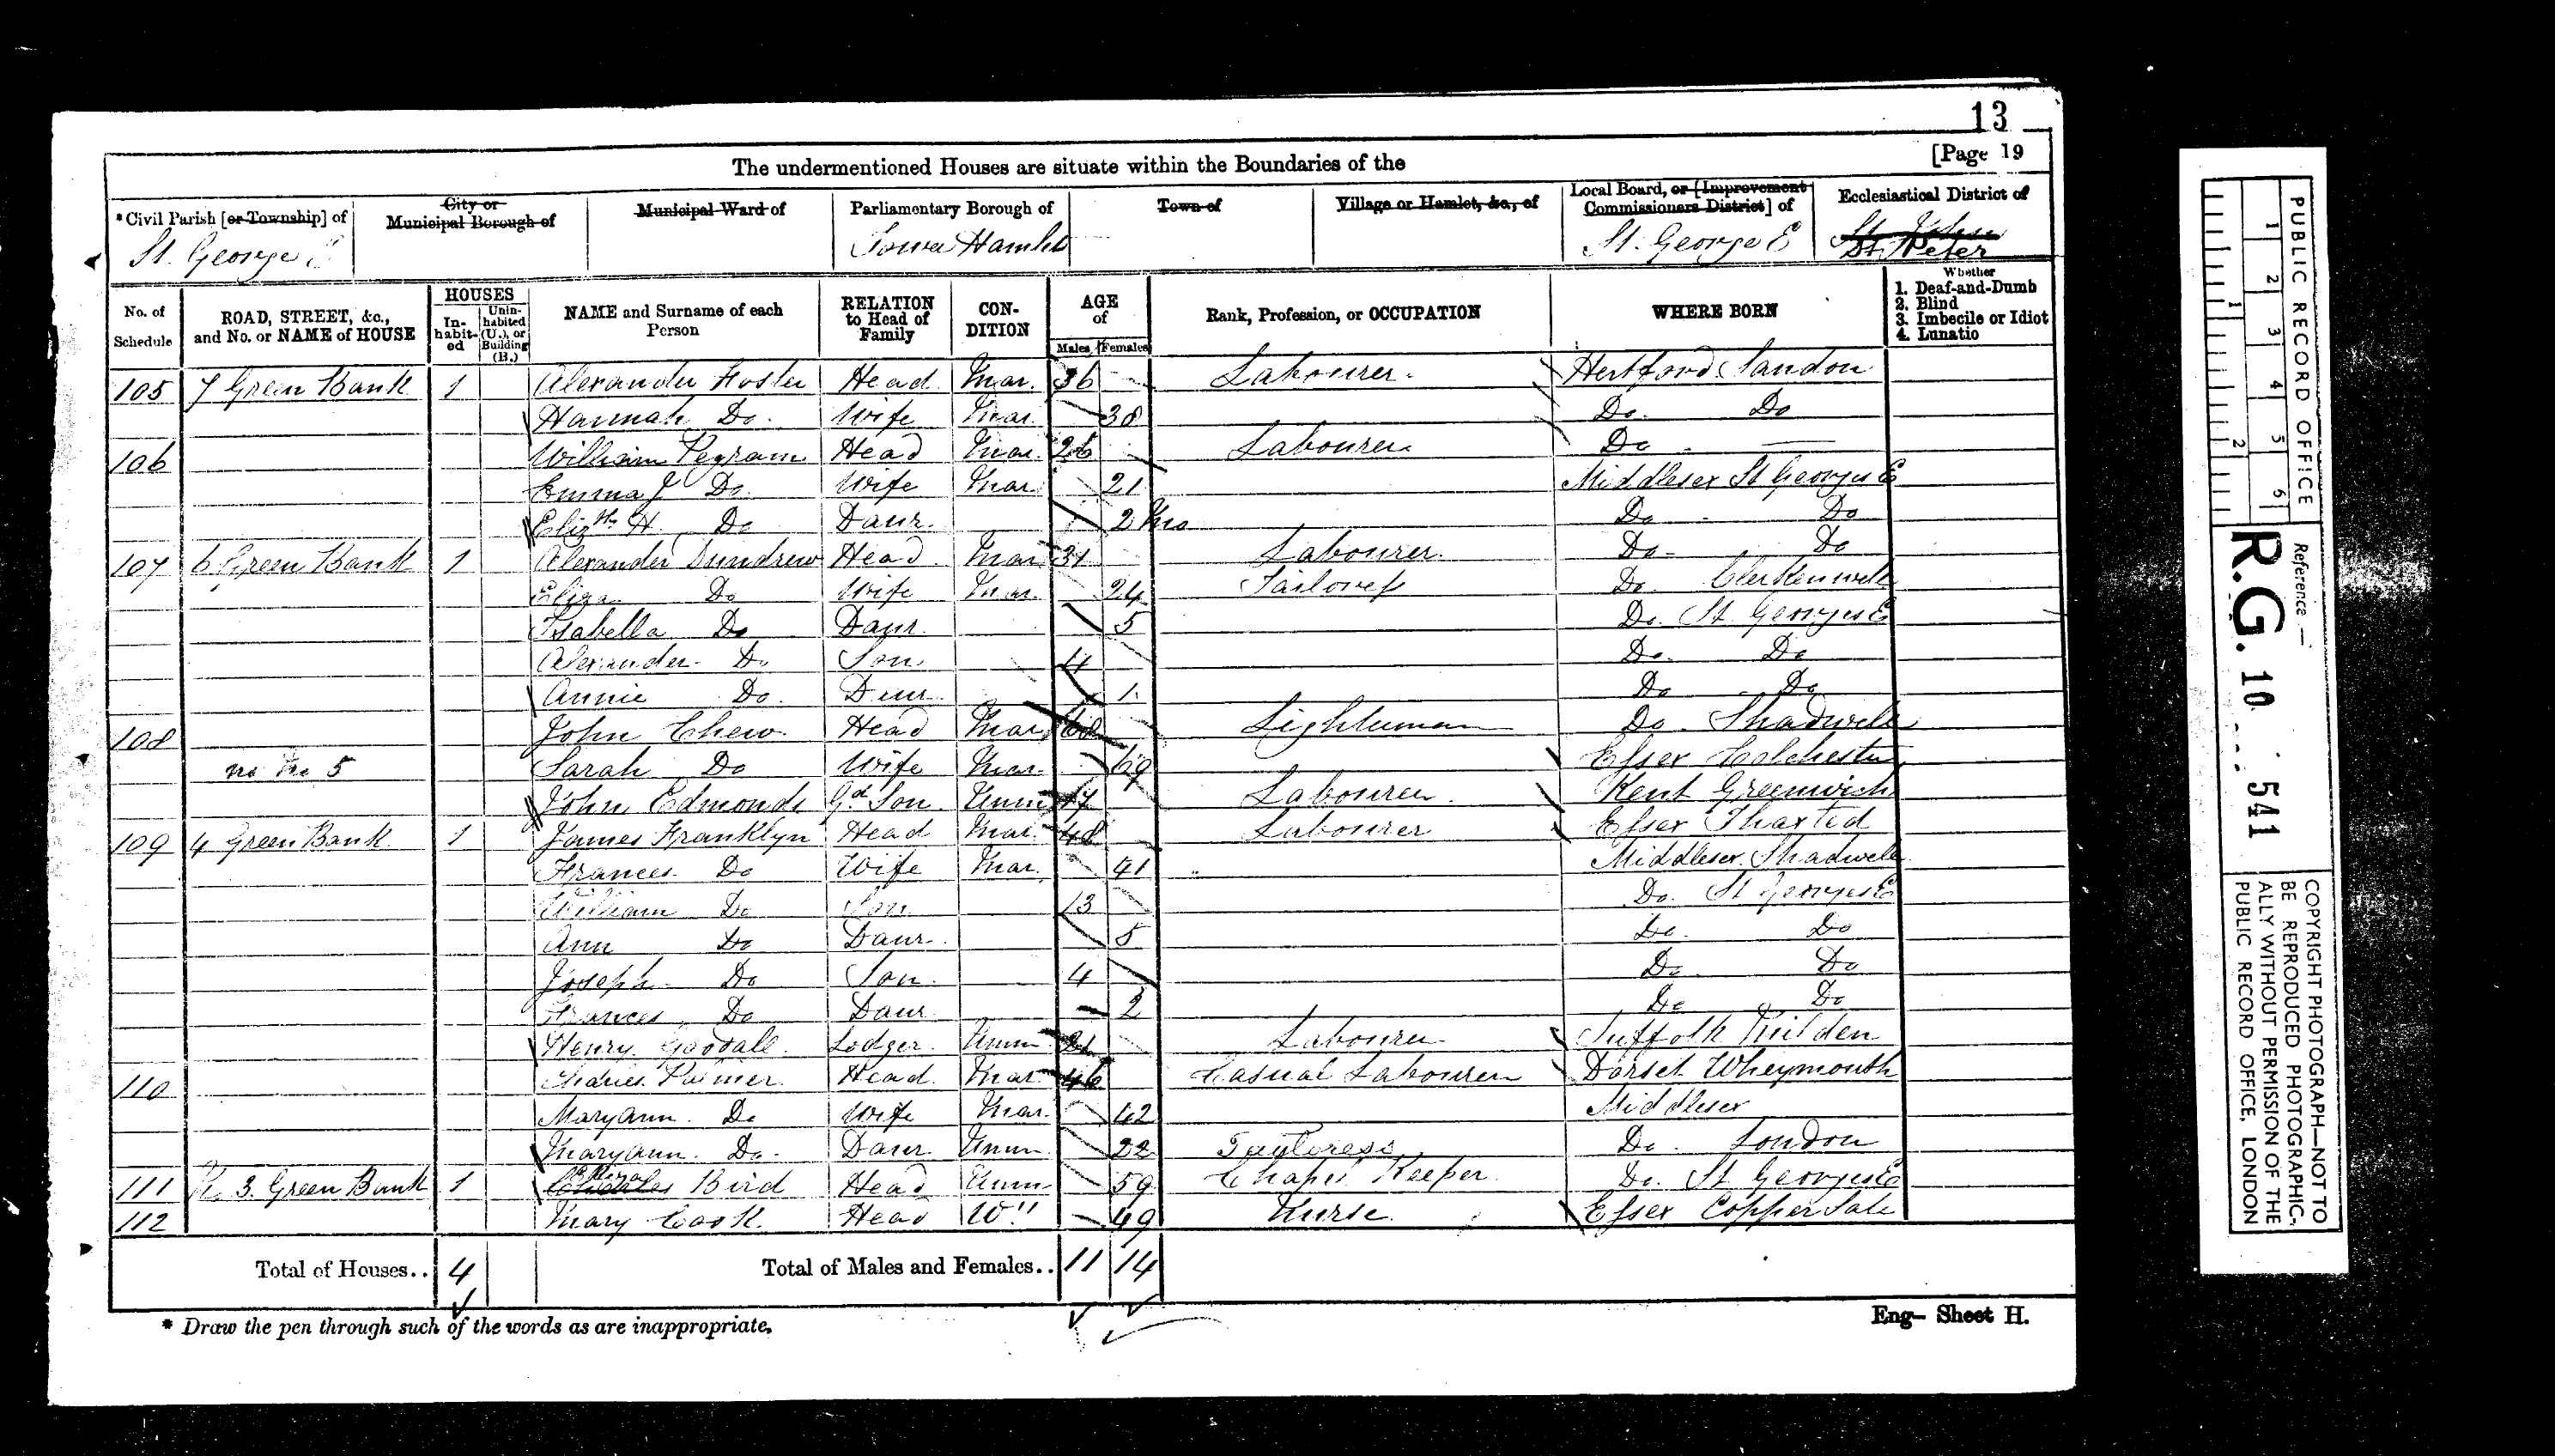 13
The undermentioned Houses are situate within the Boundaries of the
[Page 19
*Civil Parish [or Township] of
St. George E
City or Municipal Borough of
Municipal Ward of
Parliamentary Borough of
Tower Hamlets
Town of
Village or Hamlet, &c., of
Local Board, or [Improvement Commissioners District] of
St. George E
Ecclesiastical District of
St. John
St. Peter
No. of Schedule
ROAD, STREET, &c., and No. or NAME of HOUSE
HOUSES
In-habit-ed
Unin-habited (U.), or Building (B.)
NAME and Surname of each Person
RELATION to Head of Family
CON-DITION
AGE of
Males
Females
Rank, Profession, or OCCUPATION
WHERE BORN
Whether
1. Deaf-and-Dumb
2. Blind
3. Imbecile or Idiot
4. Lunatic
105 7 Green Bank 1 Alexander Foster Head Mar. 36 Labourer. Hertford Sandon
Hannah Do. Wife Mar. 38 Do. Do
106 William Pegram Head Mar. 26 Labourer Do
Emma J Do. Wife Mar 21 Middlesex St Georges E
Elizth H. Do Daur. 2 Mo Do Do
107 6 Green Bank 1 Alexander Dundrew Head Mar 31 Labourer. Do Do
Eliza Do Wife Mar. 24 Tailoress Do Clerkenwell
Isabella Do Daur. 5 Do. St Georges E
Alexander Do Son 4 Do. Do
Annie Do. Daur 1 Do Do
108 John Chew. Head Mar 68 Lighterman Do Shadwell
no no 5 Sarah Do Wife Mar. 69 Essex Colchester
John Edmonds Gd Son Unm 17 Labourer. Kent Greenwich
109 4 Green Bank 1 James Franklyn Head Mar. 48 Labourer Essex Thaxted
Frances Do Wife Mar. 41 Middlesex Shadwell
William Do Son 13 Do. St Georges E
Ann Do Daur. 5 Do. Do
Joseph Do Son. 4 Do Do
Frances Do Daur. 2 Do Do
Henry Goodall. Lodger. Unm 21 Labourer Suffolk
110 Charles Palmer. Head. Mar 46 Casual Labourer Dorset Wheymouth
Maryann. Do Wife Mar. 42 Middlesex
Maryann. Do. Daur Unm 22 Taytoress Do. London
111 3 Green Bank 1 Bird Head Unm 59 Chapel Keeper. Do. St Georges E
112 Mary Cook. Head W" 49 Nurse. Essex Coppersale
Total of Houses.. 4
Total of Males and Females.. 11 14
* Draw the pen through such of the words as are inappropriate.
Eng— Sheet H.
PUBLIC RECORD OFFICE
1 2 3 4 5 6
1 2
Reference:—
R.G. 10 541
COPYRIGHT PHOTOGRAPH—NOT TO
BE REPRODUCED PHOTOGRAPHIC-
ALLY WITHOUT PERMISSION OF THE
PUBLIC RECORD OFFICE, LONDON